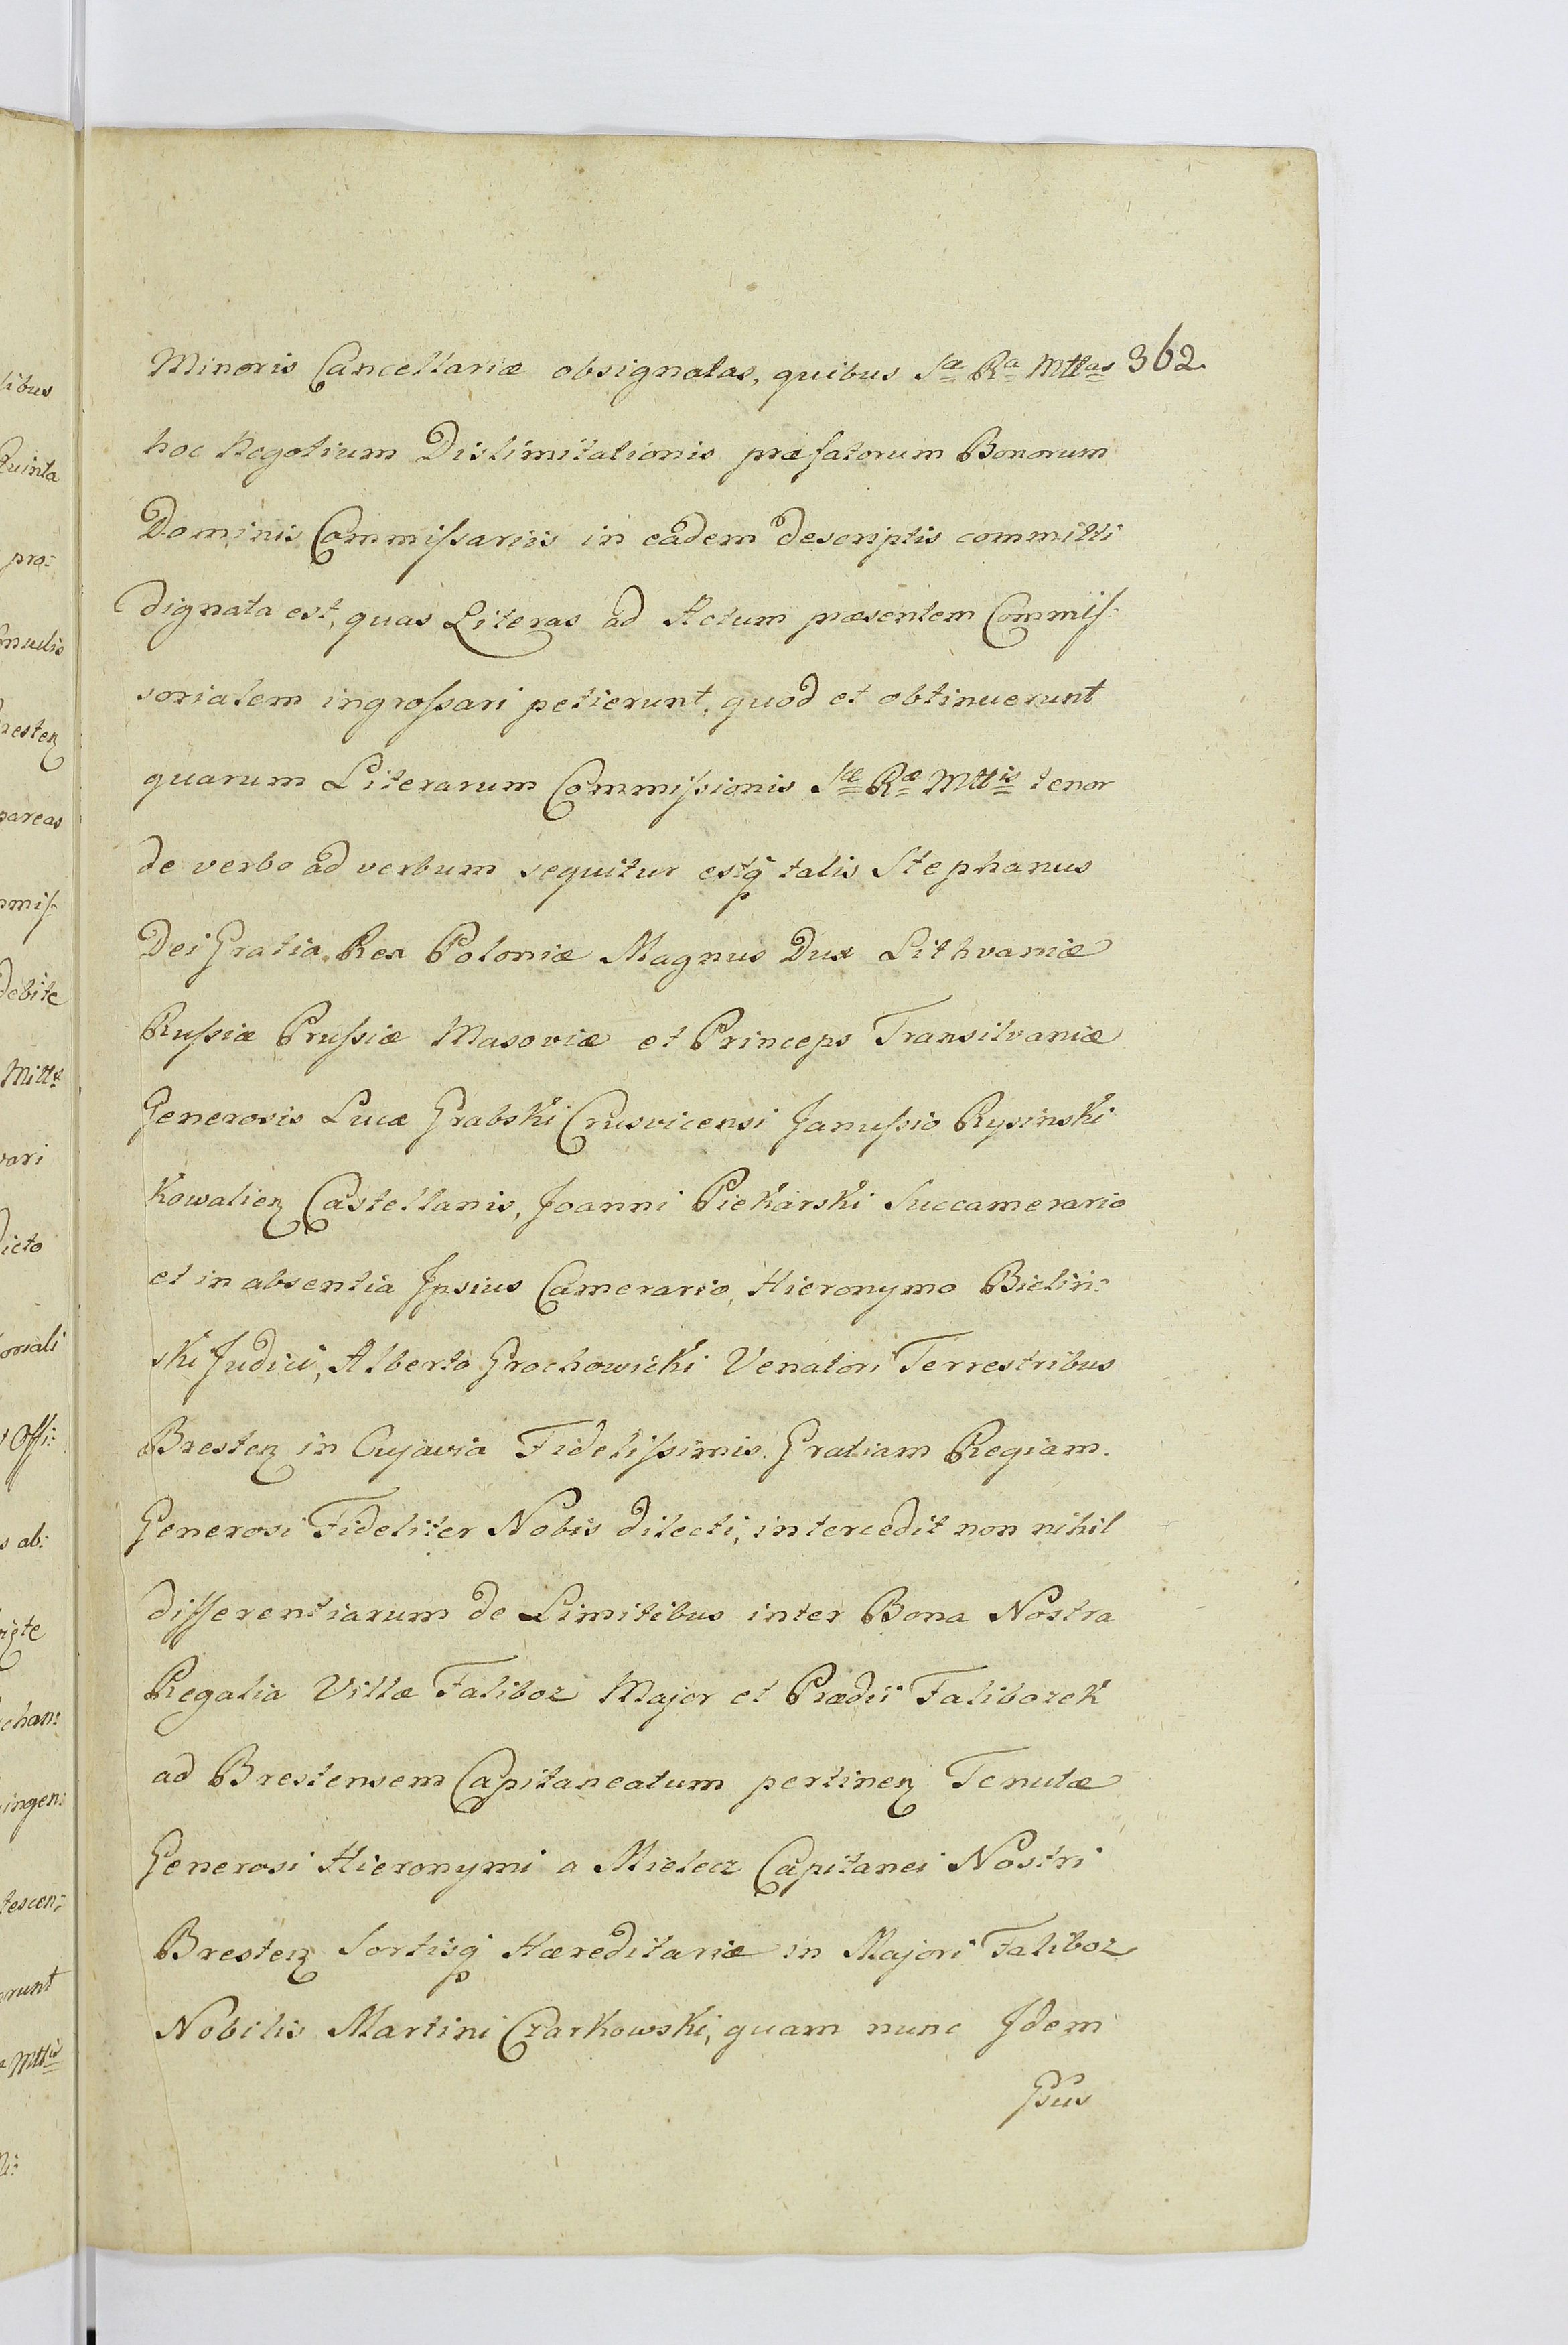 Minoris Cancellariæ obsignatas, quibus Sa Ra Mttas 362.
hoc Negotium Dislimitationis præfatorum Bonorum
Dominis Commissariis in eadem descriptis committi
dignata est, quas Literas ad Actum præsentem Commis:
sorialem ingrossari petierunt, quod et obtinuerunt
quarum Literarum Commissionis Sæ Ræ Mttis tenor
de verbo ad verbum sequitur estq talis Stephanus
Dei Gratia Rex Poloniæ Magnus Dux Lithvaniæ
Russiæ Prussiæ Masoviæ et Princeps Transilvaniæ
Generosis Lucæ Grabski Crusvicensi Janussio Rysinski
Kowalieƞ Castellanis, Joanni Piekarski Succamerario
et in absentia Ipsius Camerario, Hieronymo Bielin:
ski Judici, Alberto Grochowicki Venatori Terrestribus
Bresteƞ in Cujavia Fidelissimis. Gratiam Regiam.
Generosi Fideliter Nobis dilecti, intercedit non nihil
differentiarum de Limitibus inter Bona Nostra
Regalia Villæ Faliboz Major et Prædii Falibozek
ad Brestensem Capitaneatum pertineƞ Tenutæ
Generosi Hieronymi a Mielecz Capitanei Nostri
Bresteƞ Sortisq Hæreditariæ in Majori Faliboz
Nobilis Martini Czarkowski, quam nunc Idem
Gsus
libus
Quinta
pro:
resteƞ
pareas
debite
vari
ab:
ingen: